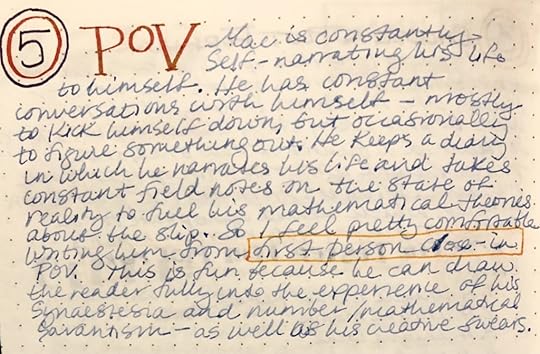 5 POV Mac is constantly
self-narrating his life
to himself. He has constant
conversations with himself – mostly
to kick himself down, but occasionally
to figure something out. He keeps a diary
in which he narrates his life and takes
constant field notes on the state of
reality to fuel his mathematical theories
about the slip. So I feel pretty comfortable
writing him from first person close-in
POV. This is fun because he can draw
the reader fully into the experience of his
synaestesia and number/mathematical
savantism – as well as his creative swears.